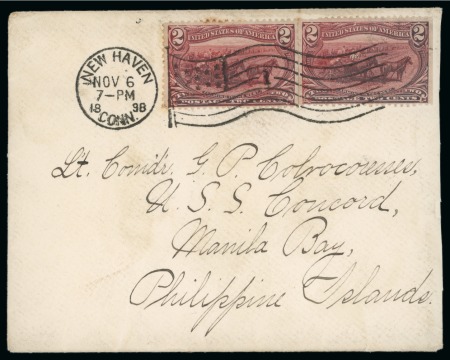 NEW HAVEN
NOV 6
7-PM
18 98
CONN.
2 UNITED STATES OF AMERICA 2
POSTAGE TWO CENTS
2 UNITED STATES OF AMERICA 2
CENTS
Lt. Comdr. G. P. Colvocoresses,
U. S. S. Concord,
Manila Bay,
Philippine Islands.